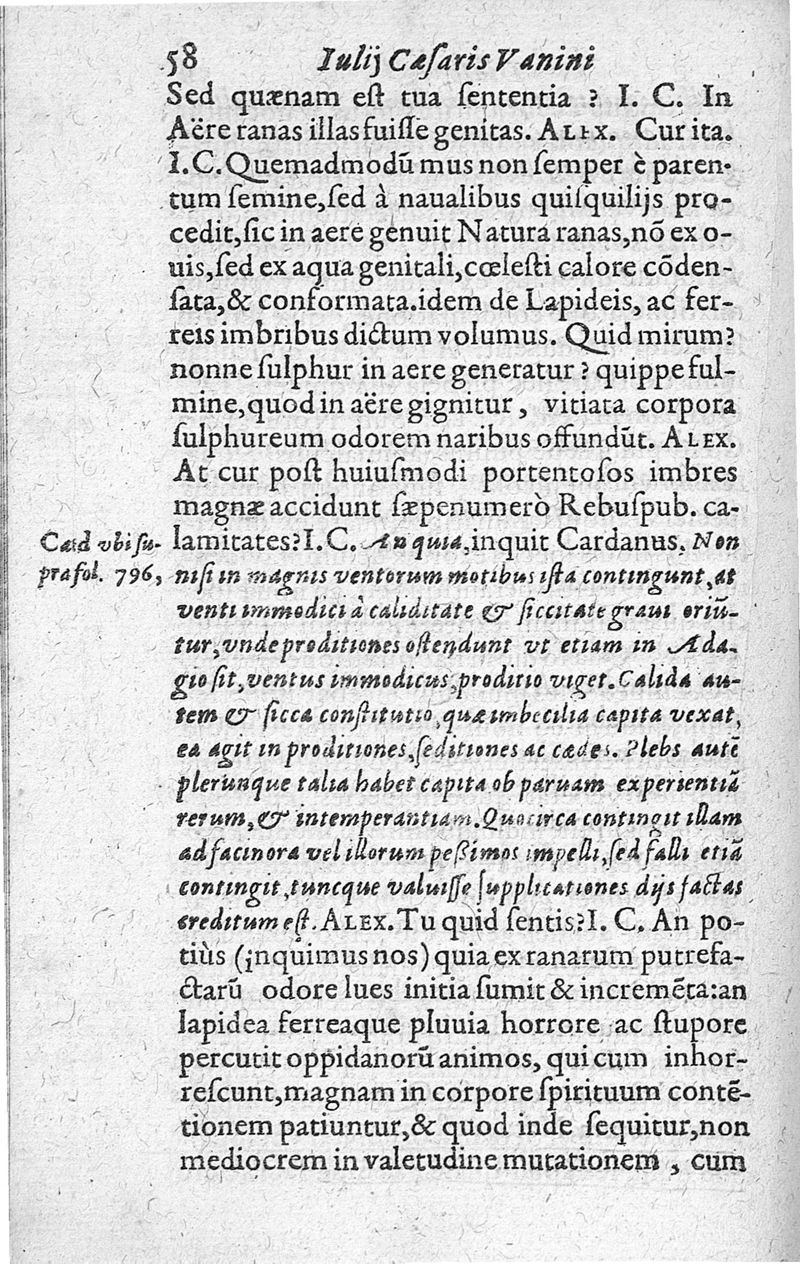 58 Iulij Cæſaris Vanini
Sed quænam eſt tua ſententia ? I. C. In
Aëre ranas illas fuiſſe genitas. ALEX. Cur ita.
I.C. Quemadmodū mus non ſemper è paren-
tum ſemine, ſed à naualibus quiſquilijs pro-
cedit, ſic in aere genuit Natura ranas, nō ex o-
uis, ſed ex aqua genitali, cœleſti calore cōden-
ſata, & conformata. idem de Lapideis, ac fer-
reis imbribus dictum volumus. Quid mirum?
nonne ſulphur in aere generatur ? quippe ful-
mine, quod in aëre gignitur, vitiata corpora
ſulphureum odorem naribus offundūt. ALEX.
At cur poſt huiuſmodi portentoſos imbres
magnæ accidunt ſæpenumerò Rebuſpub. ca-
lamitates? I.C. An quia, inquit Cardanus. Non
Card vbi ſu-
pra fol. 796,
niſi in magnis ventorum motibus iſta contingunt, at
venti immodici à caliditate & ſiccitate graui oriū-
tur, vnde proditiones oſtendunt vt etiam in Ada-
gio ſit, ventus immodicus, proditio viget. Calida au-
tem & ſicca conſtitutio, quæ imbecilia capita vexat,
ea agit in proditiones, ſeditiones ac cædes. Plebs autē
plerunque talia habet capita ob paruam experientiā
rerum, & intemperantiam. Quocirca contingit illam
ad facinora vel illorum peßimos impelli, ſed falli etiā
contingit, tuncque valuiſſe ſupplicationes dijs factas
creditum eſt. ALEX. Tu quid ſentis? I. C. An po-
tiùs (inquimus nos) quia ex ranarum putrefa-
ctarū odore lues initia ſumit & incremēta: an
lapidea ferreaque pluuia horrore ac ſtupore
percutit oppidanorū animos, qui cum inhor-
reſcunt, magnam in corpore ſpirituum contē-
tionem patiuntur, & quod inde ſequitur, non
mediocrem in valetudine mutationem, cum